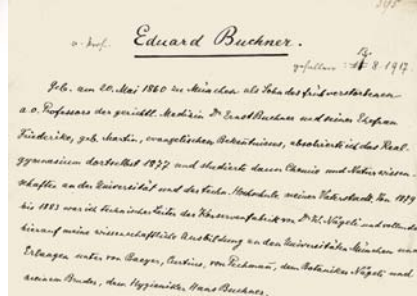 395
a. o. Prof. Eduard Buchner.
gefallen 13. 8. 1917
Geb. am 20. Mai 1860 zu München als Sohn des früh verstorbenen
a. o. Professors der gerichtl. Medizin Dr. Ernst Buchner und seiner Ehefrau
Friederike, geb. Martin, evangelischen Bekenntnisses, absolvierte ich das Real-
gymnasium dortselbst 1877 und studierte dann Chemie und Naturwissen-
schaften an der Universität und der techn. Hochschule meiner Vaterstadt. Von 1879
bis 1883 war ich technischer Leiter der Konservenfabrik von Dr. Th. Nägeli und vollendete
hierauf meine wissenschaftliche Ausbildung an den Universitäten München und
Erlangen unter von Baeyer, Curtius, von Pechmann, dem Botaniker Nägeli und
meinem Bruder, dem Hygieniker Hans Buchner.